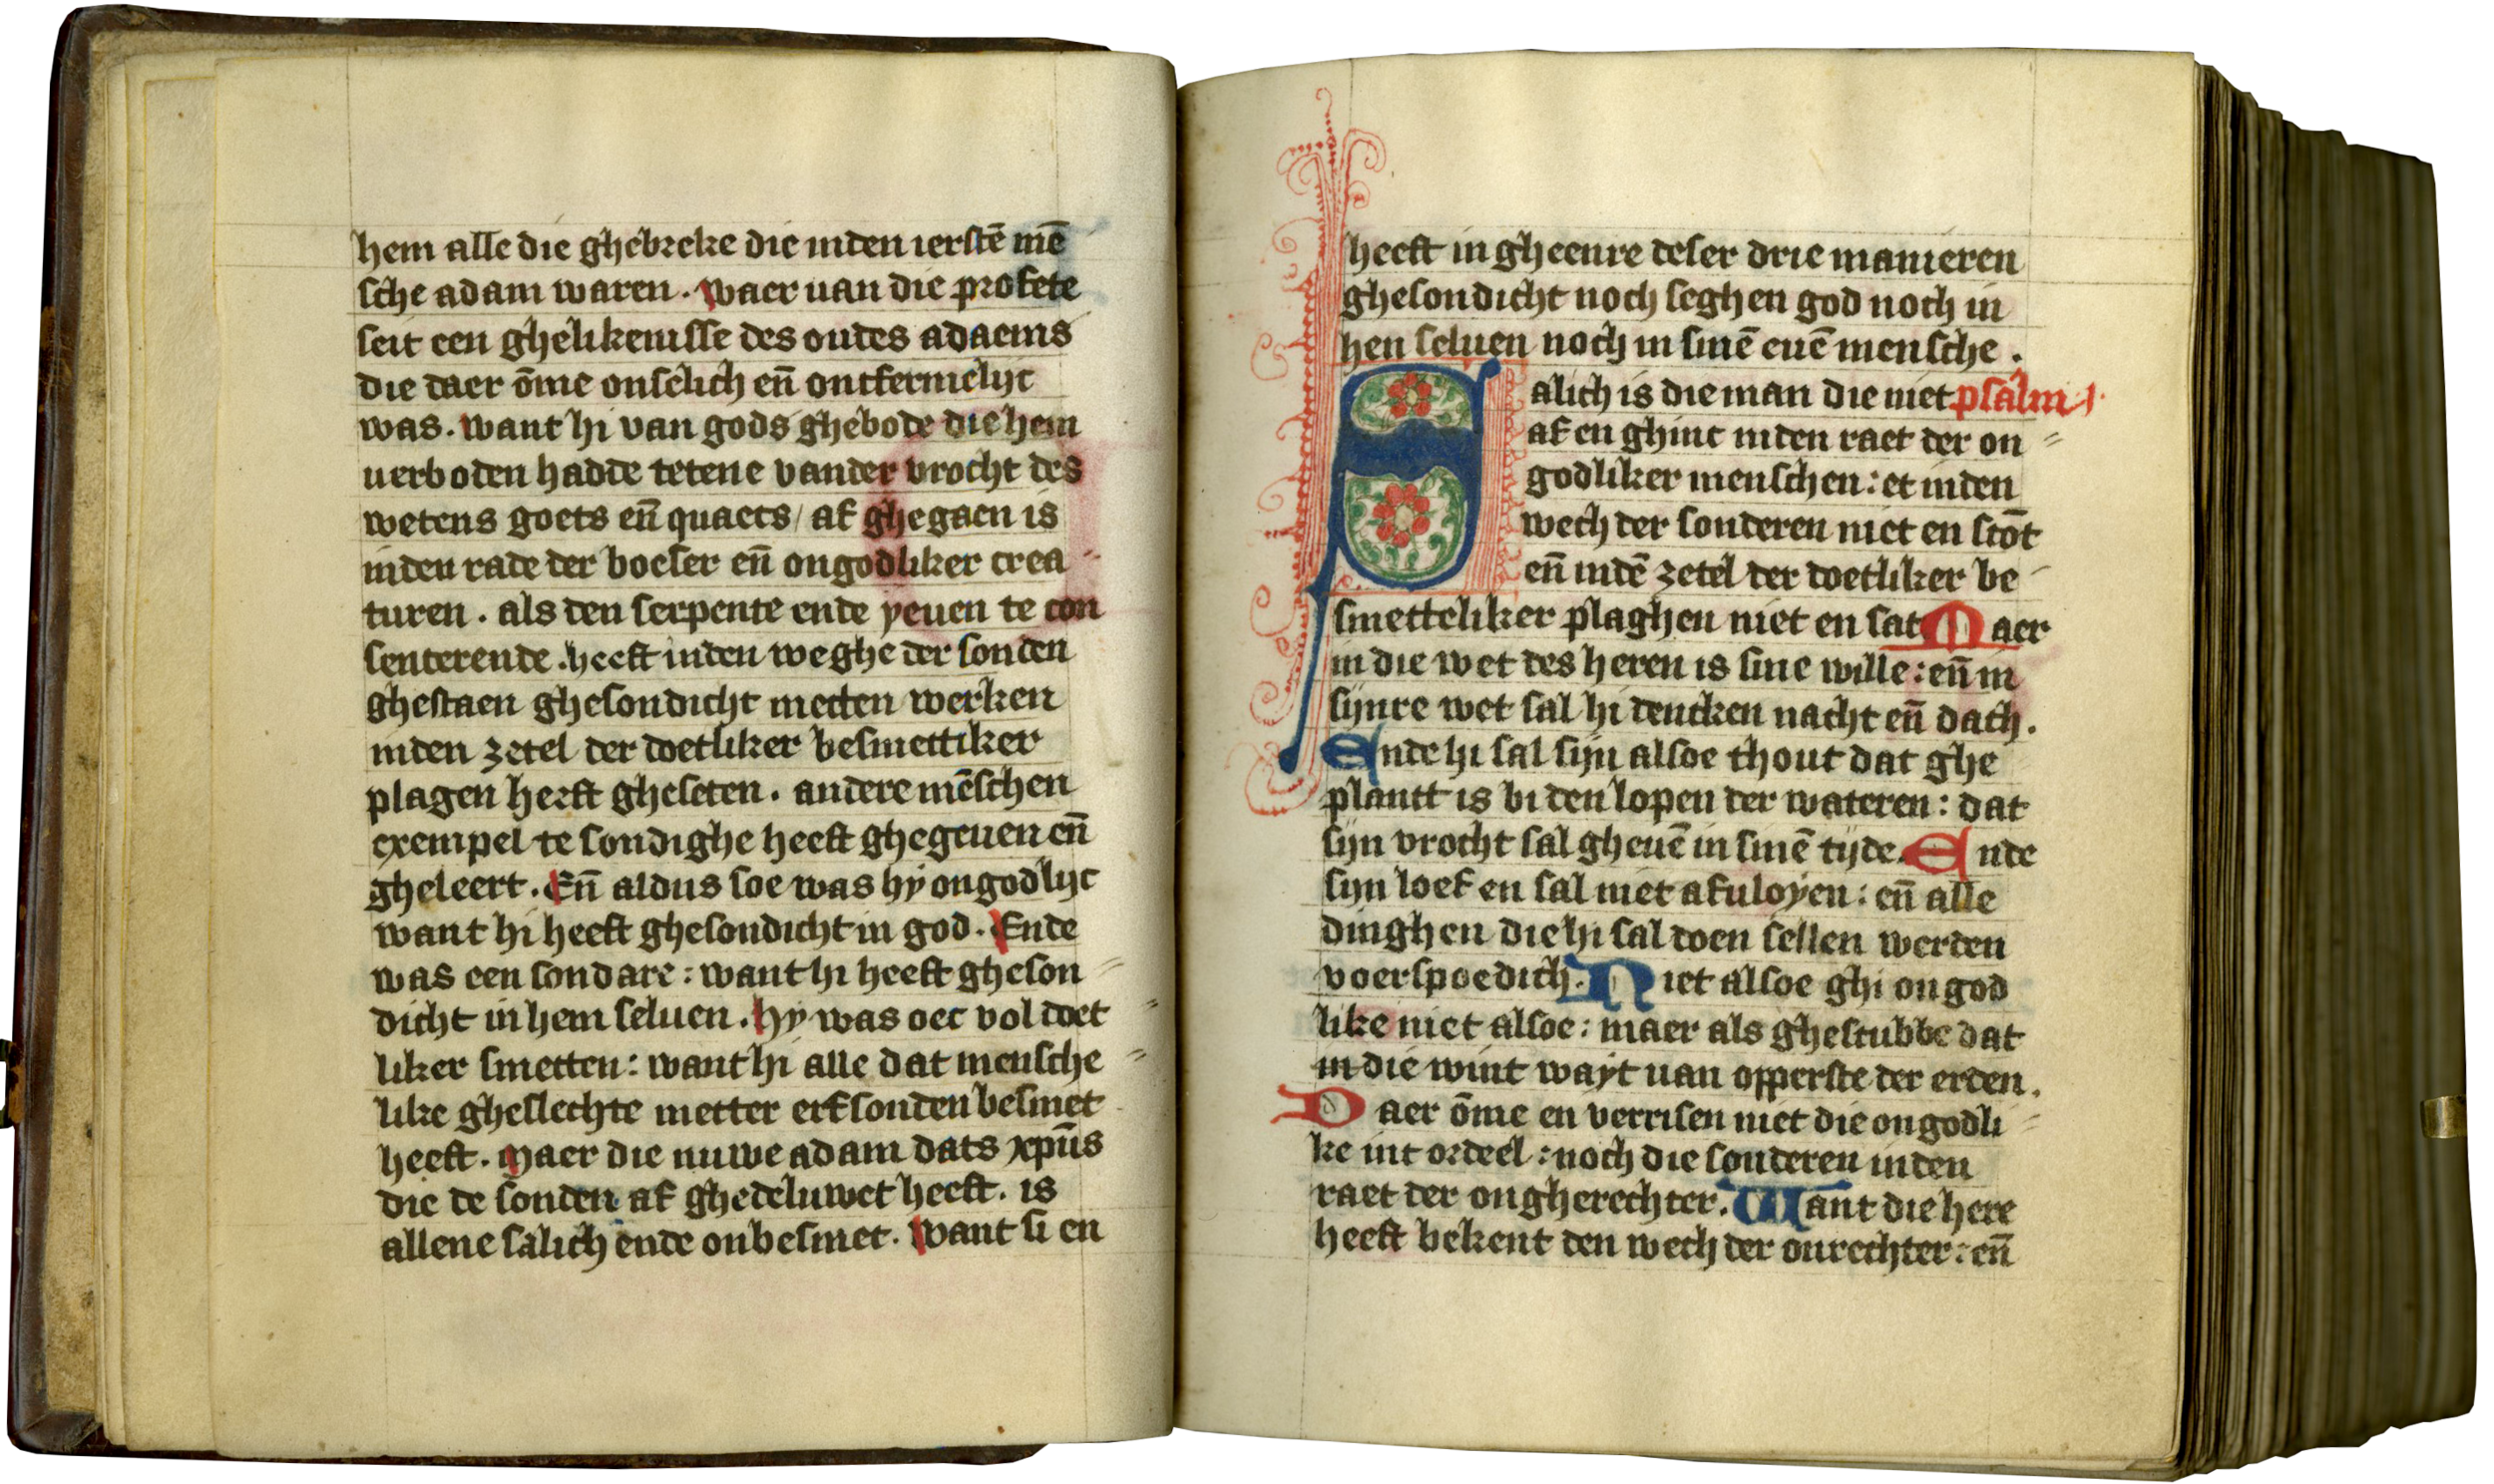 hem alle die ghebreke die inden ierstē mē
sche adam waren. waer uan die profete
seit een ghelikenisse des oudes adaems
die daer ōme onselich en̄ ontfermelijc
was. want hi van gods ghebode die hem
uerboden hadde tetene vander vrocht des
wetens goets en̄ quaets/ af ghegaen is
inden rade der boeser en̄ ongodliker crea
turen. als den serpente ende yeuen te con
senterende. heeft inden weghe der sonden
ghestaen ghesondicht metten werken
inden zetel der doetliker besmettiker
plagen heeft gheseten. andere mēschen
exempel te sondighe heeft ghegeuen en̄
gheleert. En̄ aldus soe was hy ongodlijc
want hi heeft ghesondicht in god. Ende
was een sondare: want hi heeft gheson
dicht in hem seluen. hy was oec vol doet
liker smetten: want hi alle dat mensche
like gheslechte metter erfsonden besmet
heeft. Maer die nuwe adam dats xpūs
die de sonden af ghedeluwet heeft. is
allene salich ende onbesmet. want si en
heeft in gheenre deser drie manieren
ghesondicht noch seghen god noch in
hen seluen noch in sinē euē mensche.
Salich is die man die niet psalm 1.
af en ghinc inden raet der on
godliker menschen: et inden
wech der sonderen niet en stōt
en̄ indē zetel der doetliker be
smetteliker plaghen niet en sat Maer
in die wet des heren is sine wille: en̄ in
sijnre wet sal hi dencken nacht en̄ dach.
Ende hi sal sijn alsoe thout dat ghe
plantt is bi den lopen der wateren: dat
sijn vrocht sal gheuē in sinē tijde. Ende
sijn loef en sal niet afuloyen: en̄ alle
dinghen die hi sal doen sellen werden
voerspoedich. Niet alsoe ghi ongod
like niet alsoe: maer als ghestubbe dat
in die wint wayt uan opperste der erden.
Daer ōme en verrisen niet die ongodli
ke int ordeel: noch die sonderen inden
raet der ongherechter. Want die here
heeft bekent den wech der onrechter: en̄